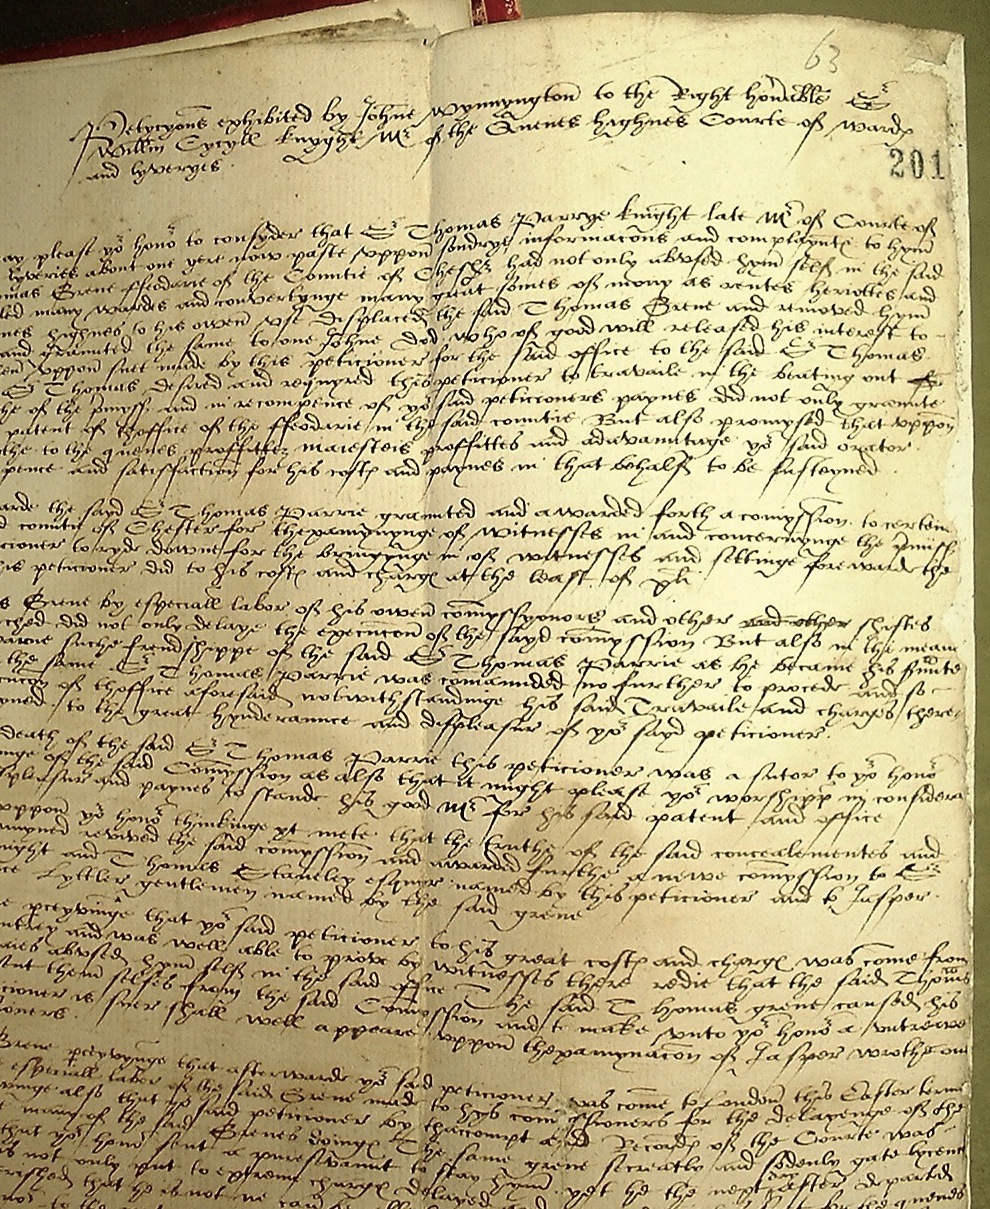 63
Petycyons exhibited by Johne Wynnyngton to the Right honorable Sr
Willm Cycyll knyght Mr of the Quenes highnes Courte of Wards
and lyveryes
201
ay please yor honor to consyder that Sr Thomas Parrye knight late Mr of Courte of
lyveries about one yere now paste uppon sondrye informacons and complaynts to hym
omas Grene ffeodarie of the Countie of Chesh had not only abused hym self in the said
led many wardes and convertynge many great somes of mony as rentes heriottes and
nes highnes to his owen use displaced the said Thomas Grene and removed hym
and graunted the same to one Johne Dod who of good will released his interest to
uppon suet made by this peticioner for the said office to the said Sr Thomas
Sr Thomas desired and requyred this peticioner to travaile in the beating out
he of the pmyss and in recompence of yor said peticioners paynes did not only graunte
patent of thoffice of the ffeodarie in the said countie But also promysed that uppon
the to the quenes proffittes maiesteis proffittes and adavauntage yor said orator
pence and satisfaction for his costs and paynes in that behalf to be susteyned
arde the sayd Sr Thomas Parrie graunted and awarded forth a comyssion to certen
d countie of Chester for thexamynynge of witnesses in and concernynge the pmyss
cioner to ryde downe for the bringynge in of witnesses and settinge forewarde the
is peticioner did to his costs and charges at the least of xl li
s Grene by especiall labor of his owen comyssyoners and other and other shiftes
ched did not only delaye the execucon of the sayd comyssion But also in the meane
suche frendshippe of the said Sr Thomas Parrie as he became his
the same Sr Thomas Parrie was comaunded no further to procede and so
cucon of thoffice aforesaid notwithstandinge his said Travaile and charges there
yned to the great hynderaunce and displeasur of yor sayd peticioner
death of the said Sr Thomas Parrie this peticioner was a sutor to yor honor
inge of the said Comyssion as also that it might please yor worshipp in considera
spleasur and paynes to stande his good Mr for his said patent and office
uppon yor honor thinkinge yt mete that the truthe of the said concealementes and
revived the said comyssion and awarded furthe a newe comyssion to Sr
night and Thomas Staneley esquyr named by this peticioner and to Jasper
ce Lyttler gentlemen named by the said grene
e perceyvinge that yor said peticioner to his great costs and charges was come from
ntrey and was well able to prove by witnesses there redie that the said Thoms
abused hym self in the said office The said Thomas grene caused his
ent them selfes from the said Comyssion and to make unto yor honor a untrewe
cioner is suer shall well appeare uppon thexamynacon of Jasper
ioners
Grene perceyvynge that afterwarde yor said peticioner was come to London this Easter terme
especiall labor of the said Grene made to hys comyssioners for the delayenge of the
vinge also that yor said peticioner by thaccompt and Records of the Courte was
t many of the said Grenes doings The same grene secreatly and sodenly gate lycence
that yor honor sent a pursevaunt to stay hym yet he the next day after departed
s not only put to extreme charges delayed